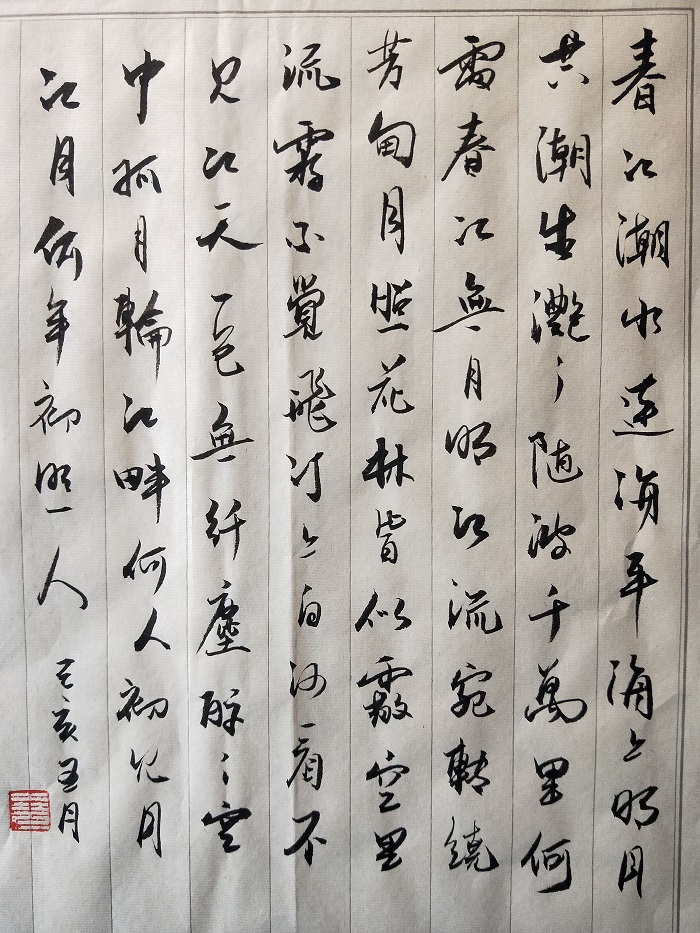 春江潮水連海平海上明月
共潮生灧〻随波千萬里何
處春江無月明江流宛轉繞
芳甸月照花林皆似霰空里
流霜不覺飛汀上白沙看不
見江天一色無纤塵皎〻空
中孤月輪江畔何人初見月
江月何年初照人 己亥五月